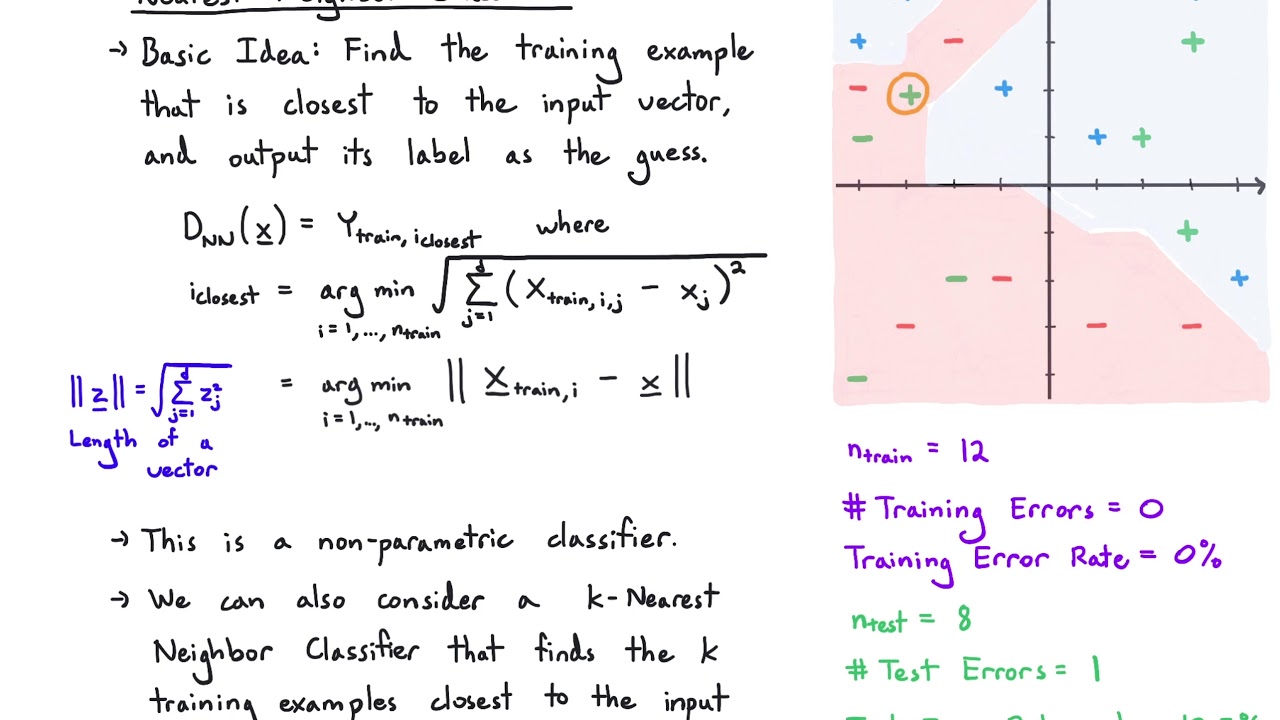 Nearest Neighbor
→ Basic Idea: Find the training example
that is closest to the input vector,
and output its label as the guess.
D_NN(x) = Y_train, iclosest where
iclosest = arg min_{i=1,..., n_train} √(∑_{j=1}^{d} (X_train,i,j − x_j)²)
= arg min_{i=1,..., n_train} || X_train,i − x ||
||z|| = √(∑_{j=1}^{d} z_j²)
Length of a
vector
→ This is a non-parametric classifier.
→ We can also consider a k-Nearest
Neighbor Classifier that finds the k
training examples closest to the input
n_train = 12
# Training Errors = 0
Training Error Rate = 0%
n_test = 8
# Test Errors = 1